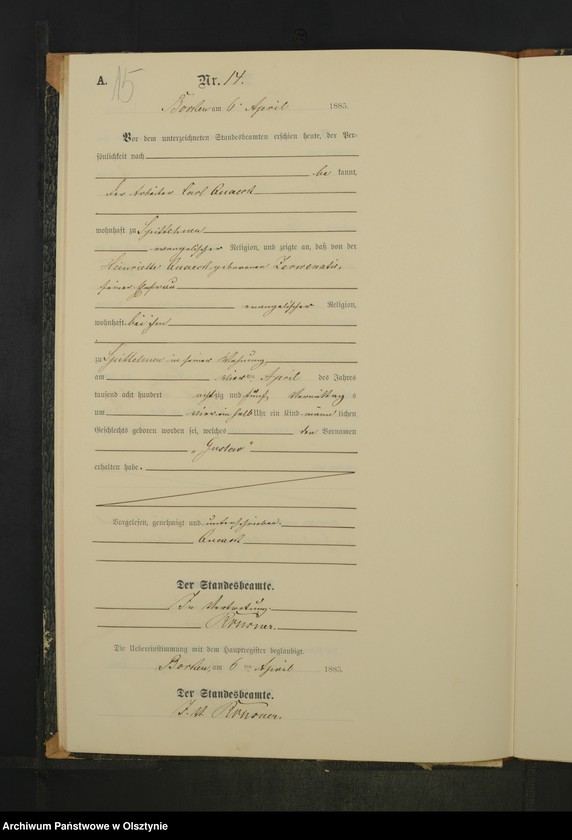 A. 15 Nr. 14.
Borken am 6ten April 1885.
Vor dem unterzeichneten Standesbeamten erschien heute, der Per-
sönlichkeit nach
be kannt,
der Arbeiter Carl
wohnhaft zu
evangelischer Religion, und zeigte an, daß von der
Henriette geborenen
seiner Ehefrau
evangelischer Religion,
wohnhaft bei ihm
zu in seiner Wohnung
am vierten April des Jahres
tausend acht hundert achtzig und fünf Vormittag s
um vier ein halb Uhr ein Kind männ lichen
Geschlechts geboren worden sei, welches den Vornamen
„Gustav“
erhalten habe.
Vorgelesen, genehmigt und unterschrieben.
Der Standesbeamte.
In Vertretung.
Vorstehende
Die Uebereinstimmung mit dem Hauptregister beglaubigt.
Borken, am 6ten April 1885.
Der Standesbeamte.
Archiwum Państwowe w Olsztynie